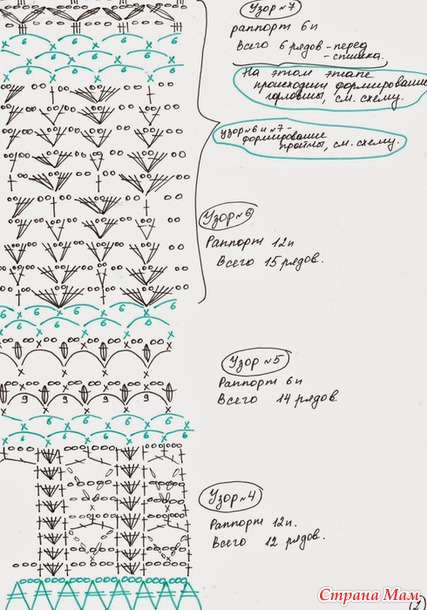 Узор №7
раппорт 6п
Всего 6 рядов - перед
- спинка.
На этом этапе
происходит формирование
горловины, см. схему.
узор №6 и №7 -
формирование
проймы, см. схему.
Узор №6
Раппорт 12п
Всего 15 рядов.
Узор №5
Раппорт 6п
Всего 14 рядов
Узор №4
Раппорт 12п.
Всего 12 рядов.
Страна Мам